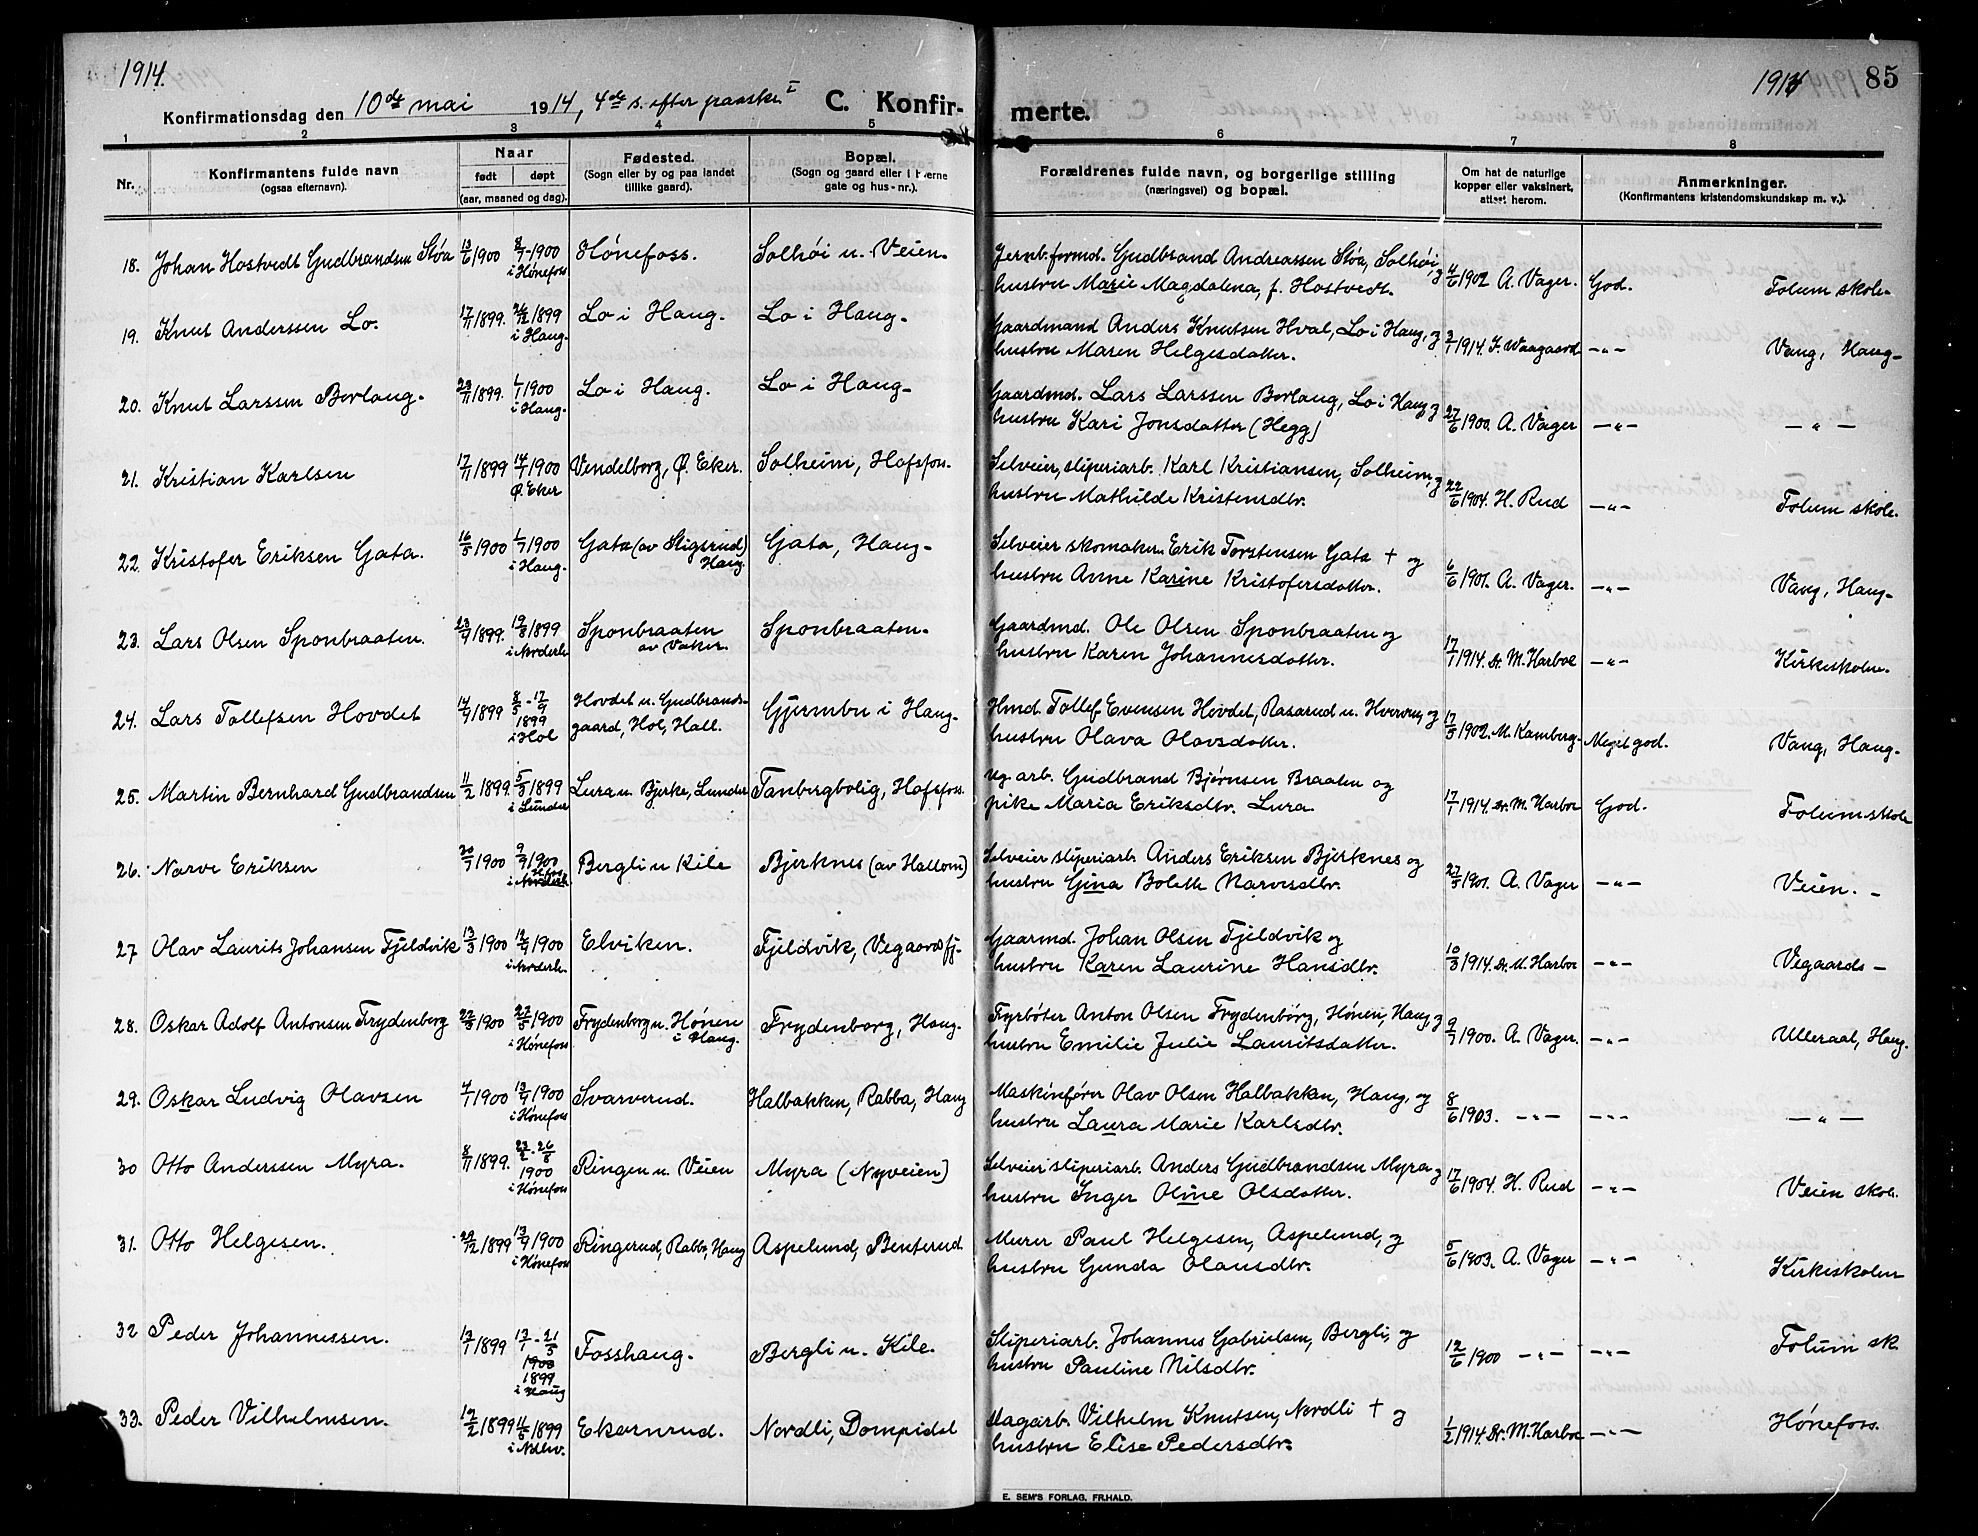 1914.
1914 85
Konfirmationsdag den 10de mai 1914, 4de s. efter paaske. I C. Konfir- merte.
1 2 3 4 5 6 7 8
Nr.
Konfirmantens fulde navn
(ogsaa efternavn).
Naar
født døpt
(aar, maaned og dag).
Fødested.
(Sogn eller by og paa landet
tillike gaard).
Bopæl.
(Sogn og gaard eller i byerne
gate og hus-nr.).
Forældrenes fulde navn, og borgerlige stilling
(næringsvei) og bopæl.
Om hat de naturlige
kopper eller vaksinert,
attest herom.
Anmerkninger.
(Konfirmantens kristendomskundskap m. v.).
18. Johan Hostvedt Gudbrandsen Støa 13/6 1900 8/7-1900 Hønefoss. Solhøi u. Veien. Jernb.formd. Gudbrand Andreassen Støa, Solhøi, og
i Hønefoss hustru Marie Magdalena, f. Hostvedt. 4/6 1902 A. Vager. God. Follum skole.
19. Knut Anderssen Lo. 17/11 1899. 26/12 1899 Lo i Haug. Lo i Haug. Gaardmand Anders Knutsen Hval, Lo i Haug, og
i Haug. hustru Maren Helgesdatter. 3/1 1914. F. Waagaard -"- Vang, Haug.
20. Knut Larssen Borlaug. 29/11 1899. 1/1 1900 Lo i Haug. Lo i Haug. Gaardmd. Lars Larssen Borlaug, Lo i Haug, og
i Haug. hustru Kari Jonsdatter (Hegg) 27/6 1900. A. Vager -"- -"-
21. Kristian Karlsen 17/11 1899 14/1 1900 Vendelborg, Ø. Eker. Solheim, Hofsfoss. Selveier, sliperiarb. Karl Kristiansen, Solheim, og
Ø. Eker hustru Mathilde Kristensdtr. 22/6 1904. H. Rud -"- Follum skole.
22. Kristofer Eriksen Gata. 16/5 1900 1/7 1900 Gata (av Stigsrud) Haug Gata, Haug. Selveier skomaker Erik Torstensen Gata † og
i Haug. hustru Anne Karine Kristofersdatter. 6/6 1901. A. Vager. -"- Vang, Haug.
23. Lars Olsen Sponbraaten. 1899. 1899 Sponbraaten av Vaker. Sponbraaten. Gaardmd. Ole Olsen Sponbraaten og
i Norderh. hustru Karen Johannesdatter. 17/1 1914. Dr. M. Harboe -"- Kirkeskolen.
24. Lars Tollefsen Hovdet 14/4 1899 8/5 - 17/9 1899 i Hol Hovdet u. Gudbrands- gaard, Hol, Hall. Gjermbu i Haug. Hmd. Tollef Evensen Hovdet, Rasarud u. Hverven, og
hustru Olava Olavsdatter. 17/5 1902. M. Kamberg. Meget god. Vang, Haug.
25. Martin Bernhard Gudbrandsen 11/2 1899. 5/3 1899 Lura u. Bjerke, Lunder Tanbergbolig, Hofsfoss. Ug. arb. Gudbrand Bjørnsen Braaten og
i Lunder pike Maria Eriksdtr. Lura. 17/1 1914. Dr. M. Harboe God. Follum skole
26. Narve Eriksen 20/7 1900 9/9 1900 Bergli u Kile Bjerknes (av Hallom) Selveier sliperiarb. Anders Eriksen Bjerknes og
hustru Gina Boleth Narvesdtr. 27/5 1901. A. Vager -"- Veien.
27 Olav Laurits Johansen Fjeldvik 13/3 1900 1900 Elviken. Fjeldvik, Vegaardsfj. Gaarmd. Johan Olsen Fjeldvik og
i Norderh. hustru Karen Laurine Hansdtr. 10/3 1914. Dr. M. Harboe -"- Vegaards
28. Oskar Adolf Antonsen Frydenberg 22/3 1900 27/5 1900 Frydenberg u. Hønen i Haug. Frydenberg, Haug. Fyrbøter Anton Olsen Frydenberg, Hønen, Haug, og
i Hønefoss hustru Emilie Julie Lauritsdatter. 9/7 1900. A. Vager. -"- Ulleraal, Haug.
29. Oskar Ludvig Olavsen 4/1 1900 13/4 1900 Svarverud. Halbakken, Rabba, Haug Maskinfører Olav Olsen Halbakken, Haug, og
i Hønefoss hustru Laura Marie Karlsdtr. 8/6 1903. -"- -"- -"-
30 Otto Anderssen Myra. 8/11 1899. 23/2 - 26/8 1900 i Hønefoss Ringen u. Veien Myra (Nyveien) Selveier sliperiarb. Anders Gudbrandsen Myra og
hustru Inger Oline Olsdatter. 17/6 1904. H. Rud -"- Veien skole.
31. Otto Helgesen. 29/12 1899 13/4 1900 Ringerud, Rabba, Haug Aspelund, Benterud. Murer Paul Helgesen, Aspelund, og
i Hønefoss hustru Gunda Olausdtr. 5/6 1903. A. Vager -"- Kirkeskolen
32 Peder Johannessen. 1899 21/5 1900 1899 i Haug Fosshaug. Bergli u. Kile. Sliperiarb. Johannes Gabrielsen, Bergli, og
hustru Pauline Nilsdtr. 12/6 1900 -"- -"- Follum sk.
33. Peder Vilhelmsen. 1899 1899 Ekornrud. Nordli, Dompidal Dagarb. Vilhelm Knutsen, Nordli † og
i Ndhv. hustru Elise Pedersdtr. 1/2 1914. Dr. M. Harboe -"- Hønefoss.
E. SEM'S FORLAG, FR.HALD.